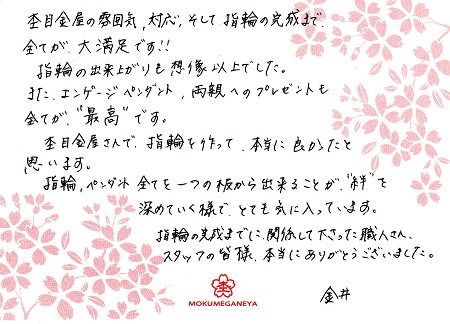 杢目金屋の雰囲気，対応，そして指輪の完成まで、
全てが、大満足です!!
指輪の出来上がりも想像以上でした。
また、エンゲージペンダント，両親へのプレゼントも
全てが“最高”です。
杢目金屋さんで、指輪を作って、本当に良かったと
思います。
指輪，ペンダント全てを一つの板から出来ることが、“絆”を
深めていく様で、とても気に入っています。
指輪の完成までに、関係して下さった職人さん、
スタッフの皆様、本当にありがとうございました。
金井
杢
MOKUMEGANEYA